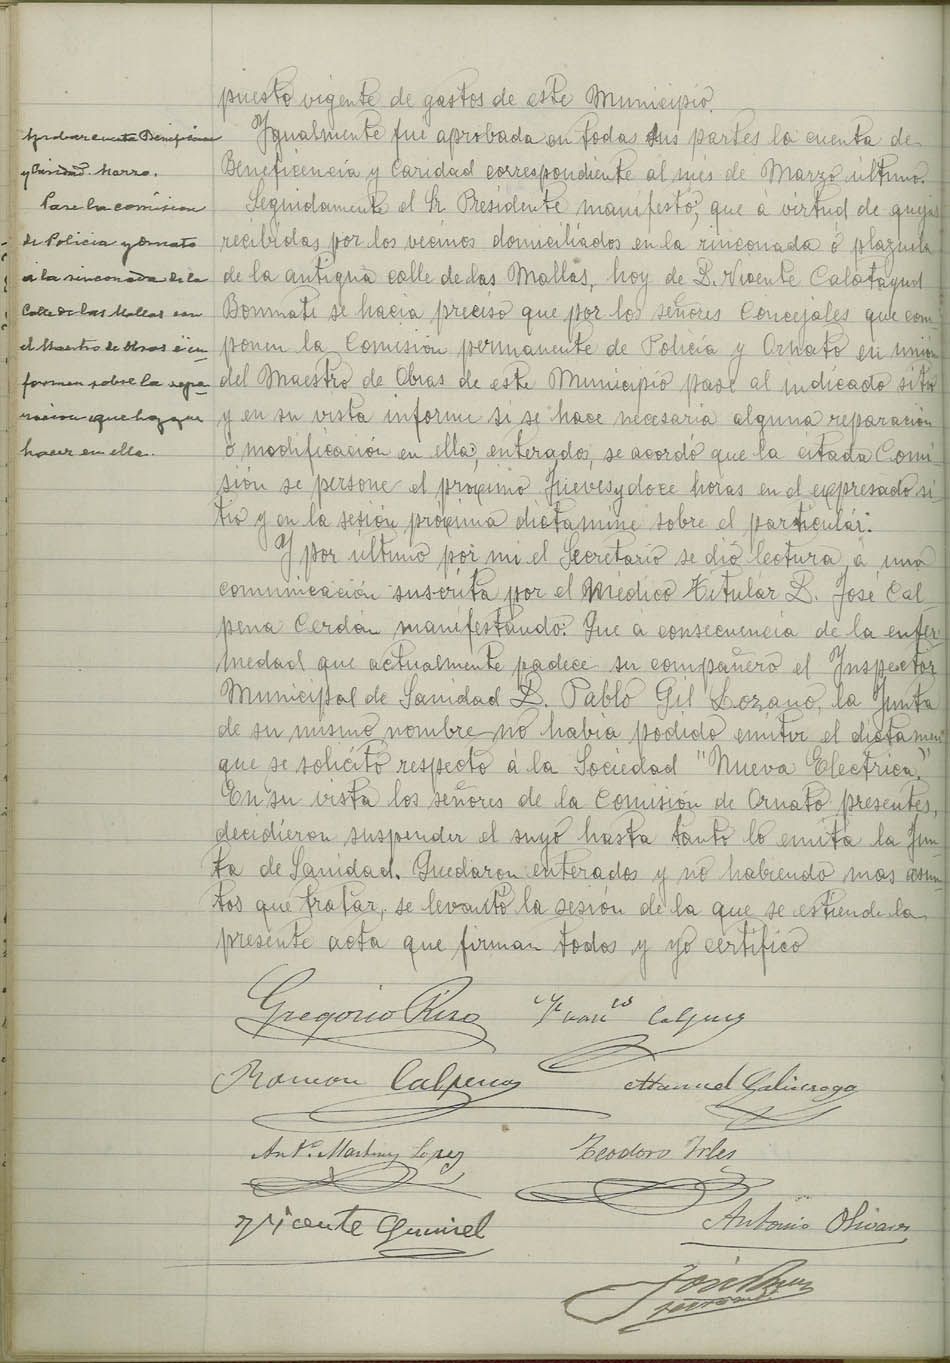 puesto vigente de gastos de este Municipio.
Igualmente fue aprobada en todas sus partes la cuenta de
Beneficencia y Caridad correspondiente al mes de Marzo último.
Seguidamente el Sr. Presidente manifestó, que á virtud de quejas
recibidas por los vecinos domiciliados en la rinconada ó plazuela
de la antigua calle de las Mallas, hoy de D. Vicente Calatayud
Bonmati se hacia preciso que por los señores Concejales que com-
ponen la Comisión permanente de Policía y Ornato en unión
del Maestro de Obras de este Municipio pase al indicado sitio
y en su vista informe si se hace necesaria alguna reparación
ó modificación en ella, enterados, se acordó que la citada Comi-
sión se persone el proximo Jueves y doce horas en el expresado si-
tio y en la sesión próxima dictamine sobre el particular.
Y por último por mi el Secretario se dió lectura á una
comunicación suscrita por el Médico Titular D. José Cal-
pena Cerdán manifestando: Que á consecuencia de la enfer-
medad que actualmente padece su compañero el Inspector
Municipal de Sanidad D. Pablo Gil Lozano, la Junta
de su mismo nombre no había podido emitir el dictamen
que se solicitó respecto á la Sociedad "Nueva Electrica."
En su vista los señores de la Comisión de Ornato presentes,
decidieron suspender el suyo hasta tanto lo emita la Jun-
ta de Sanidad. Quedaron enterados y no habiendo mas asun-
tos que tratar, se levantó la sesión de la que se extiende la
presente acta que firman todos y yo certifico
Aprobar cuenta Beneficencia
y Caridad. Marzo.
Pase la comision
de Policia y Ornato
á la rinconada de la
Calle de las Mallas con
el Maestro de Obras é in-
formen sobre la repa-
racion que hay que
hacer en ella.
Gregorio Rizo
Calpena
Ramon Calpena
Manuel Galinsoga
Anto. Martinez Lopez
Teodoro Irles
Vicente
Antonio Olivares
José